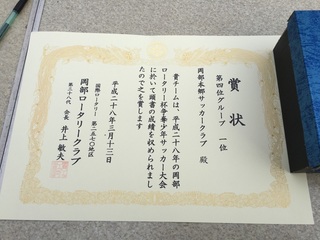 賞状
第四位グループ 一位
岡部本郷サッカークラブ 殿
貴チームは、平成二十八年の岡部
ロータリー杯争奪少年サッカー大会
に於いて頭書の成績を収められまし
たので之を賞します
平成二十八年三月十三日
国際ロータリー 第二五七〇地区
岡部ロータリークラブ
第三十八代 会長 井上 敏夫